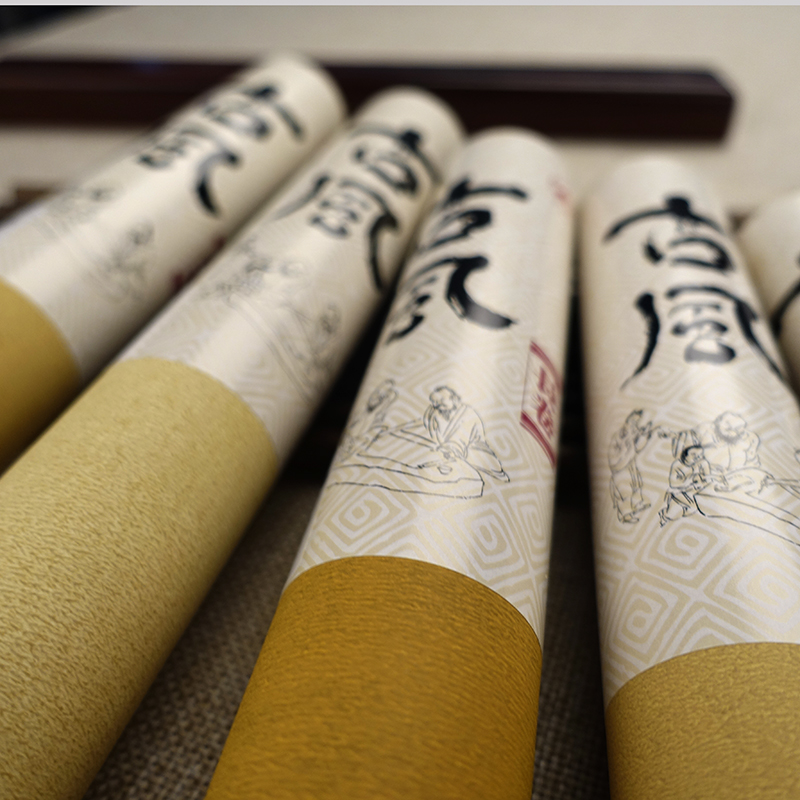 古風
古風
古風
古風